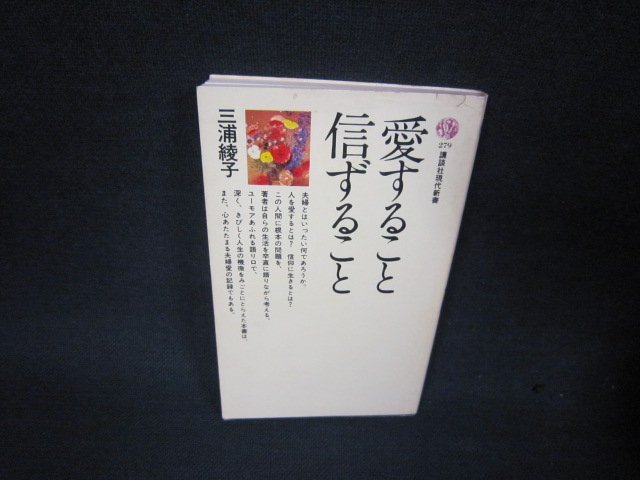 279
講談社現代新書
愛すること
信ずること
三浦綾子
夫婦とはいったい何であろうか。
人を愛するとは? 信仰に生きるとは?
この人間に根本の問題を、
著者は自らの生活を率直に語りながら考える。
ユーモアあふれる語り口で、
深く、きびしく人生の機微をみごとにとらえた本書は、
また、心あたたまる夫婦愛の記録でもある。